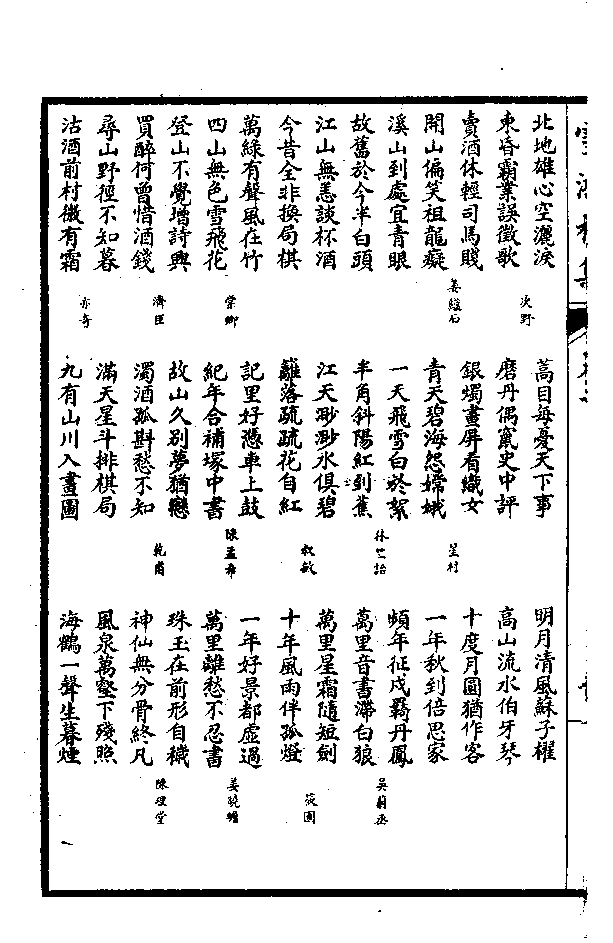 北地雄心空灑淚
東昏霸業誤徵歌
次野
賣酒休輕司馬賤
開山偏笑祖龍癡
姜繼石
溪山到處宜青眼
故舊於今半白頭
江山無恙談杯酒
今昔全非換局棋
萬綠有聲風在竹
四山無色雪飛花
棠鄉
登山不覺增詩興
買醉何曾惜酒錢
濟臣
尋山野徑不知暮
沽酒前村微有霜
亦奇
蒿目每憂天下事
磨丹偶竄史中評
銀燭畫屏看織女
青天碧海怨嫦娥
笙村
一天飛雪白於絮
半角斜陽紅到蕉
林世詒
江天渺渺水俱碧
籬落疏疏花自紅
叔敏
記里好憑車上鼓
紀年合補塚中書
陳孟希
故山久別夢猶戀
濁酒孤斟愁不知
乾甫
滿天星斗排棋局
九有山川入畫圖
明月清風蘇子櫂
高山流水伯牙琴
十度月圓猶作客
一年秋到倍思家
頻年征戍羈丹鳳
萬里音書滯白狼
吳蔚丞
萬里星霜隨短劍
十年風雨伴孤燈
筱圃
一年好景都虛過
萬里離愁不忍書
姜曉
珠玉在前形自穢
神仙無分骨終凡
陳理堂
風泉萬壑下殘照
海鶴一聲生暮煙